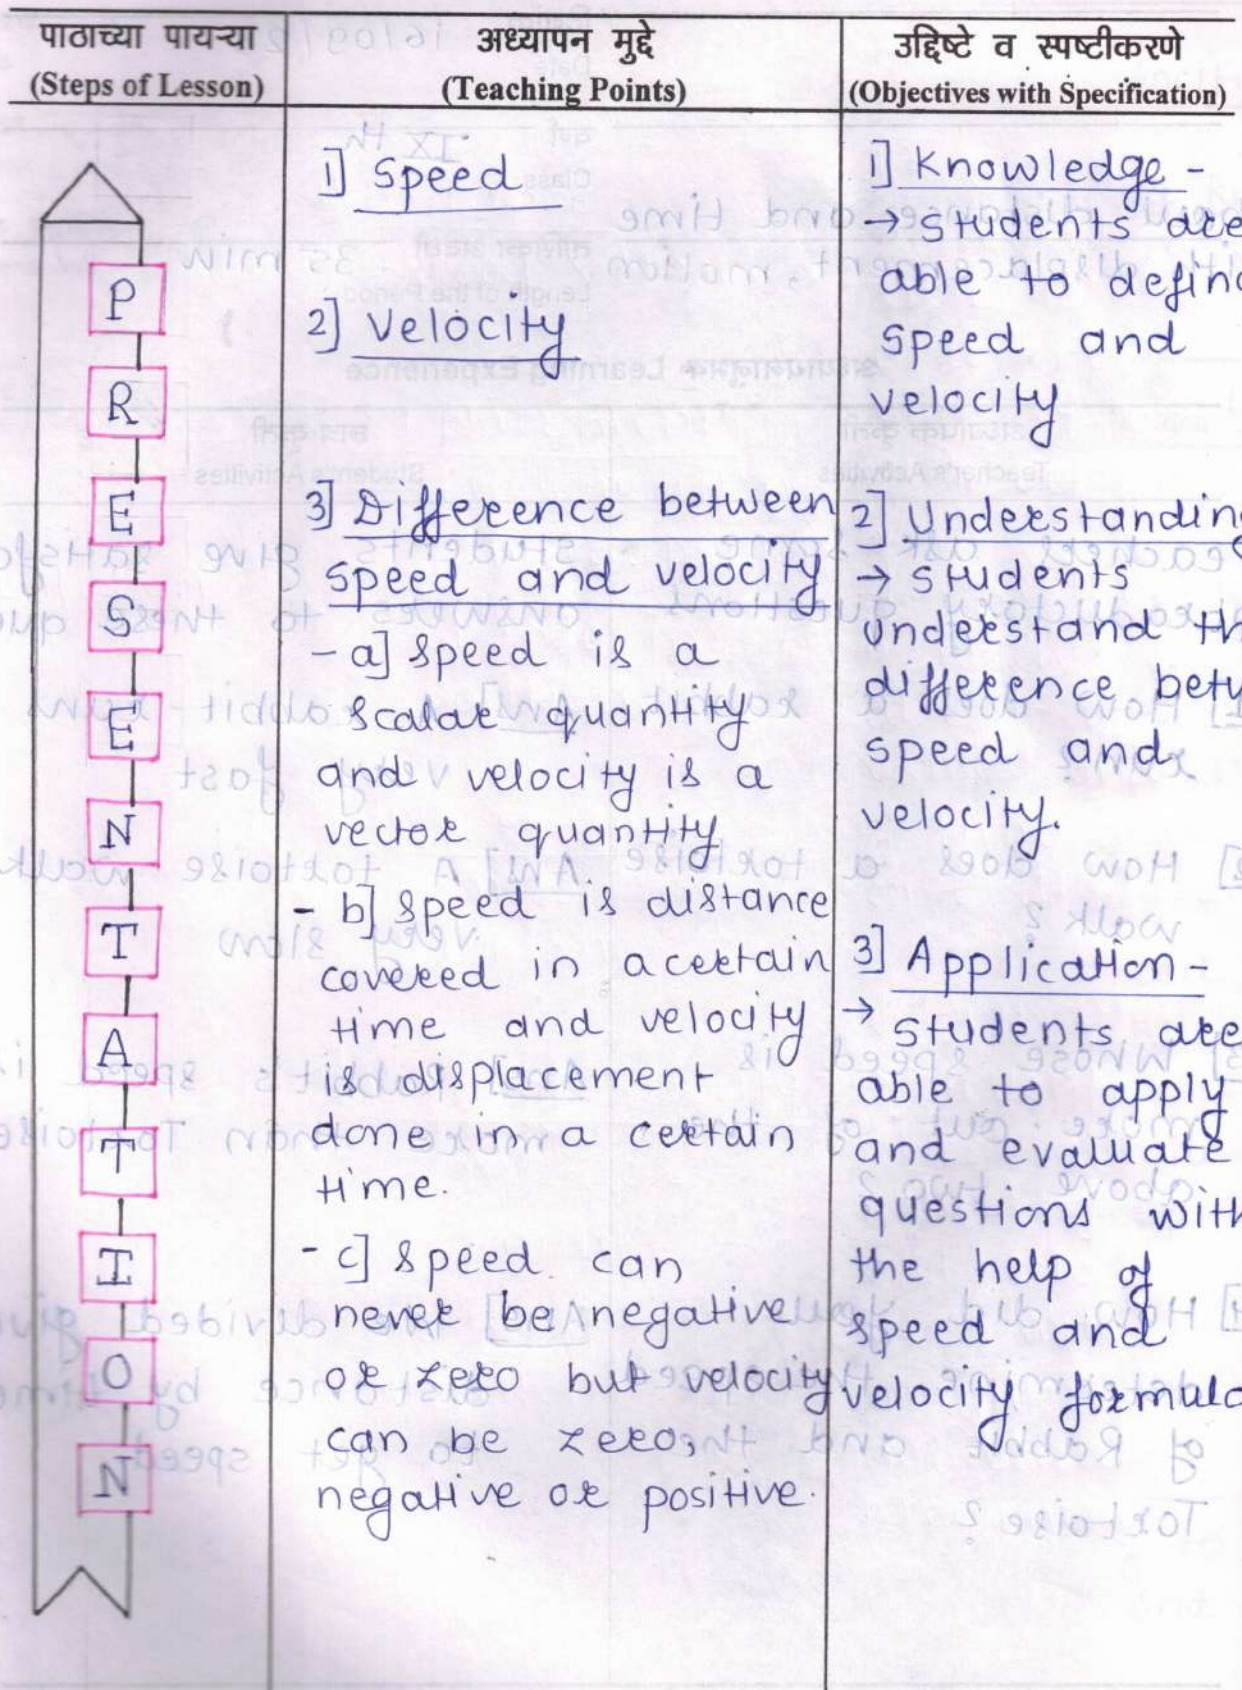 पाठाच्या पायऱ्या
(Steps of Lesson)
अध्यापन मुद्दे
(Teaching Points)
उद्दिष्टे व स्पष्टीकरणे
(Objectives with Specification)
P
R
E
S
E
N
T
A
T
I
O
N
1] Speed
2] Velocity
3] Difference between
speed and velocity
- a] Speed is a
scalar quantity
and velocity is a
vector quantity
- b] Speed is distance
covered in a certain
time and velocity
is displacement
done in a certain
time.
- c] Speed can
never be negative
or zero but velocity
can be zero,
negative or positive.
1] Knowledge -
→ Students are
able to define
speed and
velocity
2] Understanding
→ Students
understand th
difference betw
speed and
velocity.
3] Application -
→ Students are
able to apply
and evaluate
questions with
the help of
speed and
velocity formula